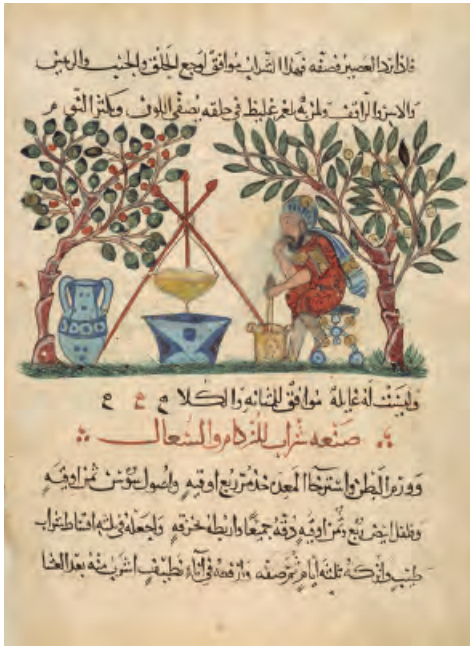 العصير فصفه فهذا الشراب موافق لوجع الحلق والجنب
ولمن به بلغم غليظ في حلقه يصفي اللون ويكثر
وليست له غايلة موافق للمثانه والكلا
صنعه شراب للزكام والسعال
وورم البطن واسترخا المعده خذ مر ربع اوقيه واصول سوسن ثمن اوقيه
وفلفل ابيض ربع وثمن اوقيه دقه جميعا واربطه خرقه واجعله في ثلثه اقساط شراب
طيب واتركه ثلثه ايام ثم صفه وارفعه في اناء نظيف اشرب منه بعد العشا